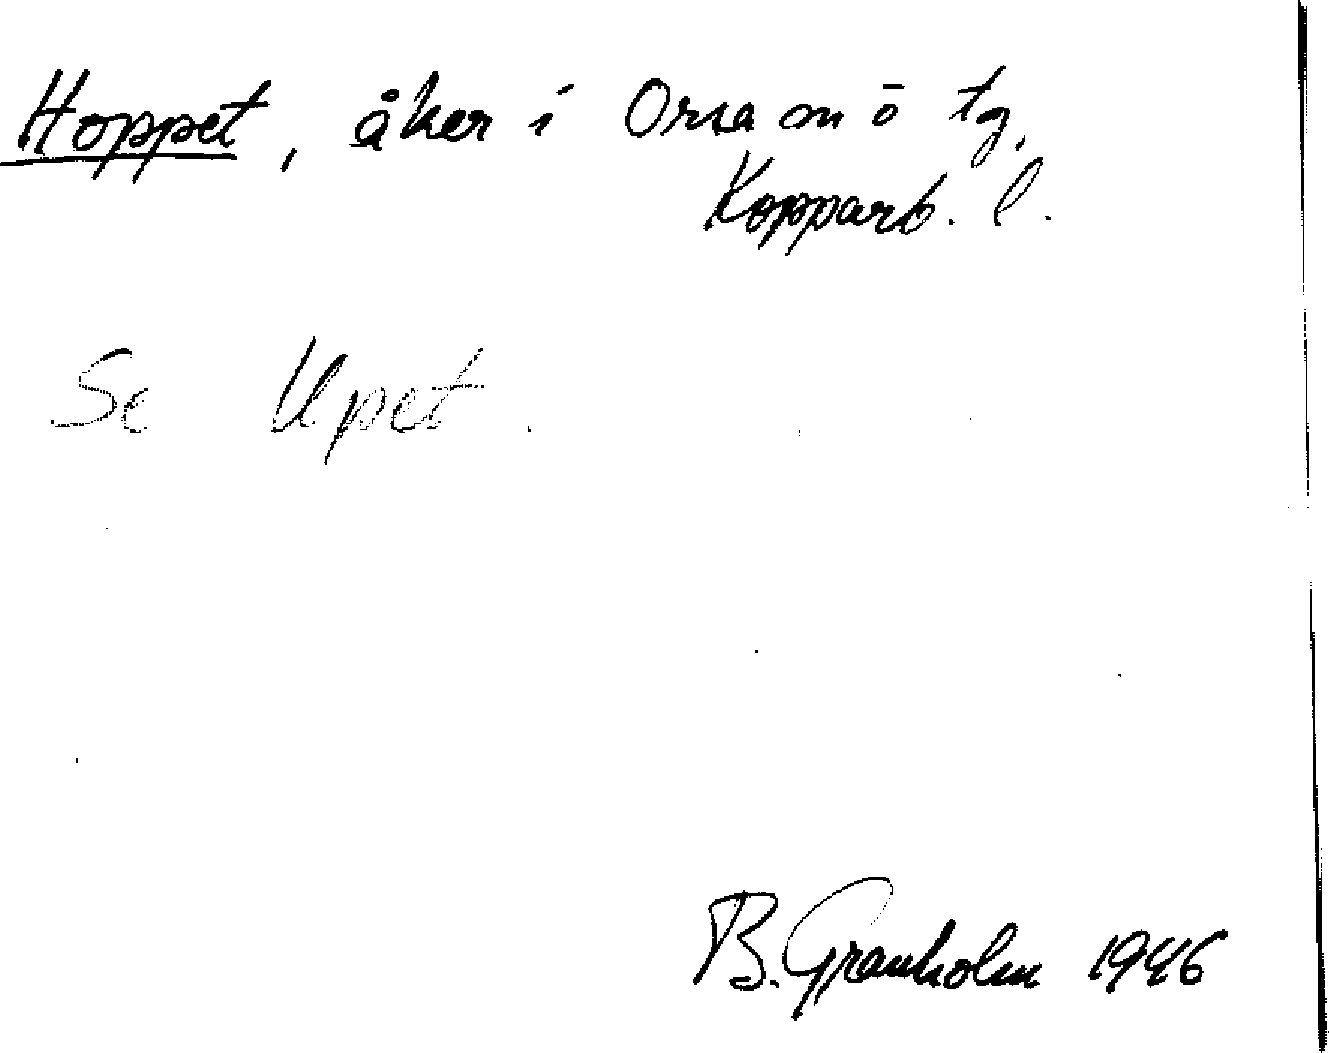 Hoppet, åker i Orsa om ö tg,
Kopparb. l.
Se Upet.
B. Granholm 1946